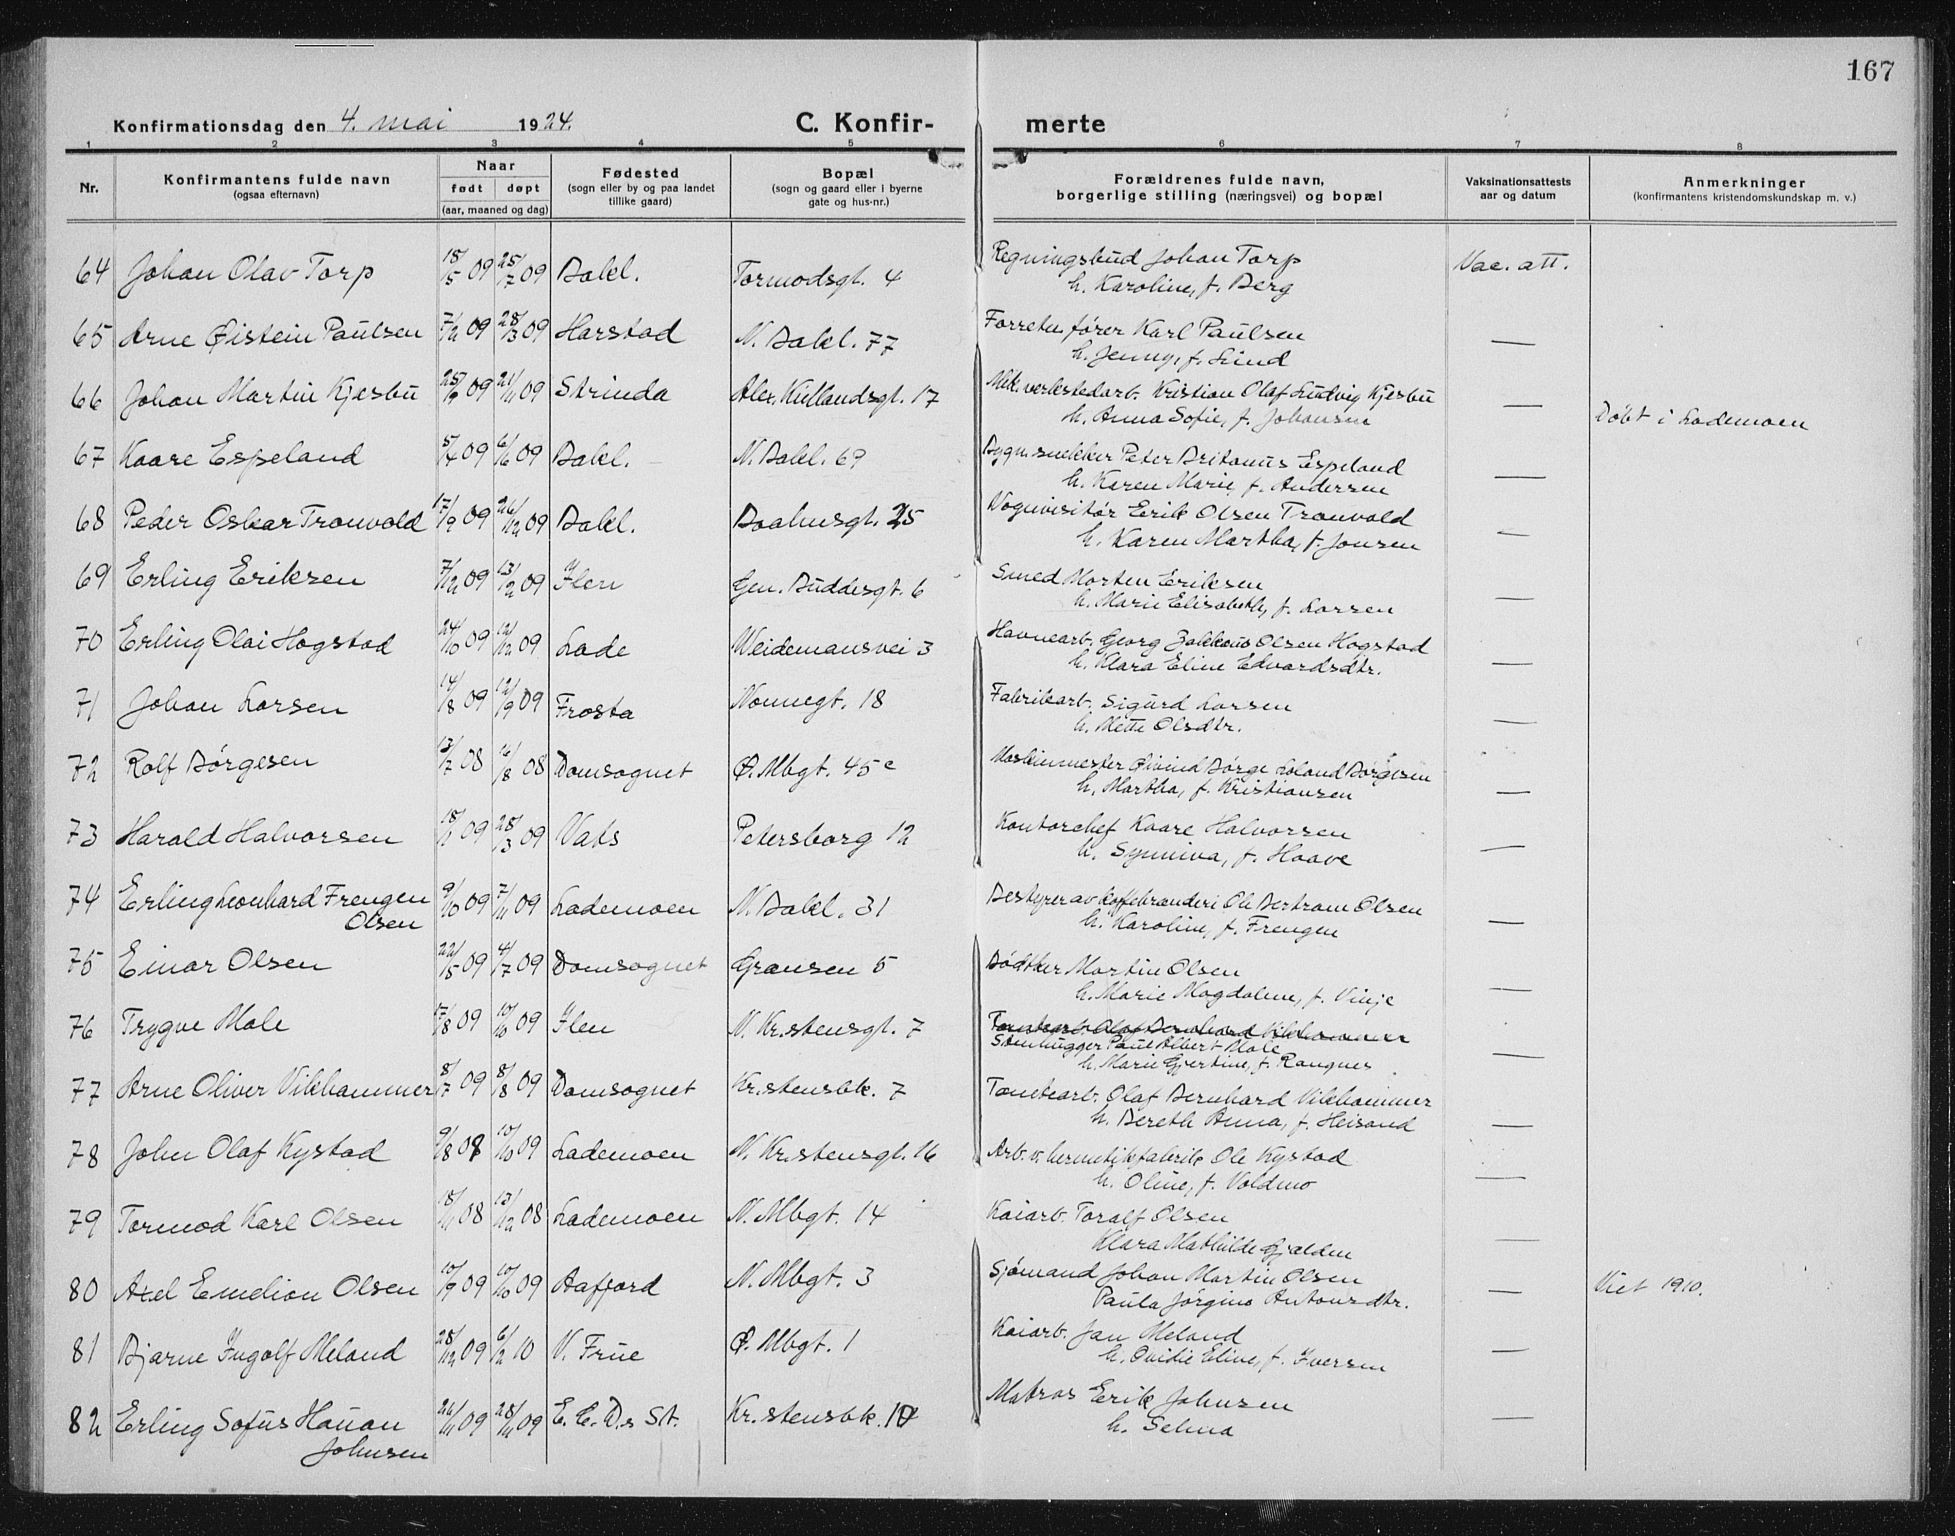 167
Konfirmationsdag den 4. mai 1924.
C. Konfir- merte
1 2 3 4 5 6 7 8
Nr.
Konfirmantens fulde navn
(ogsaa efternavn)
Naar
født døpt
(aar, maaned og dag)
Fødested
(sogn eller by og paa landet
tillike gaard)
Bopæl
(sogn og gaard eller i byerne
gate og hus-nr.)
Forældrenes fulde navn,
borgerlige stilling (næringsvei) og bopæl
Vaksinationsattests
aar og datum
Anmerkninger
(konfirmantens kristendomskundskap m. v.)
64 Johan Olav Torp 18/5 09 25/7 09 Bakl. Tormodsgt. 4 Regningsbud Johan Torp Vac. att.
h. Karoline, f. Berg
65 Arne Øistein Paulsen 7/2 09 28/3 09 Harstad N. Bakl. 77 Forretn.fører Karl Paulsen —
h. Jenny, f. Lind
66 Johan Martin Kjesbu 25/9 09 21/11 09 Strinda Alex. Kiellandsgt. 17 Mek.verkstedarb. Kristian Olaf Ludvig Kjesbu —
h. Anna Sofie, f. Johansen Døbt i Lademoen
67 Kaare Espeland 5/4 09 6/6 09 Bakl. N. Bakl. 69 Bygn.snekker Peter Britanus Espeland
h. Karen Marie, f. Andersen —
68 Peder Oskar Tronvold 17/9 09 26/12 09 Bakl. Baahusgt. 25 Vognvisitør Eerik Olsen Tronvold
h. Karen Martha, f. Jonsen —
69 Erling Eriksen 7/12 09 13/12 09 Ilen Gen. Buddesgt. 6 Smed Morten Eriksen
h. Marie Elisabeth, f. Larsen —
70 Erling Olai Hogstad 24/10 09 12/12 09 Lade Weidemansvei 3 Havnearb. Georg Zakkeus Olsen Hogstad
h. Klara Eline Edvardsdtr. —
71 Johan Larsen 14/8 09 12/9 09 Frosta Nonnegt. 18 Fabrikarb. Sigurd Larsen
h. Mette Olsdtr. —
72 Rolf Børgesen 13/7 08 16/8 08 Domsognet Ø. Mbgt. 45c Maskinmester Øivind Børge Loland Børgesen
h. Martha, f. Kristiansen —
73 Harald Halvorsen 18/1 09 28/3 09 Vats Petersborg 12 Kontorchef Kaare Halvorsen
h. Synniva, f. Haave —
74 Erling Leonhard Frengen 9/10 09 7/11 09 Lademoen N. Bakl. 31 Bestyrer av kaffebrænderi Ole Bertram Olsen
Olsen h. Karoline, f. Frengen —
75 Einar Olsen 22/5 09 4/7 09 Domsognet Grænsen 5 Bødtker Martin Olsen
h. Marie Magdalene, f. Vinje —
76 Trygve Male 17/8 09 10/10 09 Ilen N. Kr.stensgt. 7 Tomtearb. Olaf Bernhard Vikhammer
Stenhugger Paul Albert Male
h. Marie Gjertine, f. Rangnes —
77 Arne Oliver Vikhammer 8/7 09 8/8 09 Domsognet Kr.stensbk. 7 Tomtearb. Olaf Bernhard Vikhammer
h. Bereth Anna, f. Heisand —
78 John Olaf Kystad 9/8 08 10/10 09 Lademoen N. Kr.stensgt. 16 Arb. v. hermetikfabrik Ole Kystad
h. Oline, f. Voldmo —
79 Tormod Karl Olsen 18/11 08 13/12 08 Lademoen N. Mbgt. 14 Kaiarb. Toralf Olsen
Klara Mathilde Gjælden —
80 Axel Emelion Olsen 10/9 09 10/10 09 Aafjord N. Mbgt. 3 Sjømand Johan Martin Olsen — Viet 1910.
Paula Jørgine Antonsdtr.
81 Bjarne Ingolf Meland 28/12 09 6/2 10 V. Frue Ø. Mbgt. 1 Kaiarb. Jan Meland
h. Ovidie Eline, f. Iversen —
82 Erling Sofus Hauan 26/11 09 28/11 09 E. C. D.s St. Kr.stensbk. 10 Matros Erik Johnsen
Johnsen h. Selma —